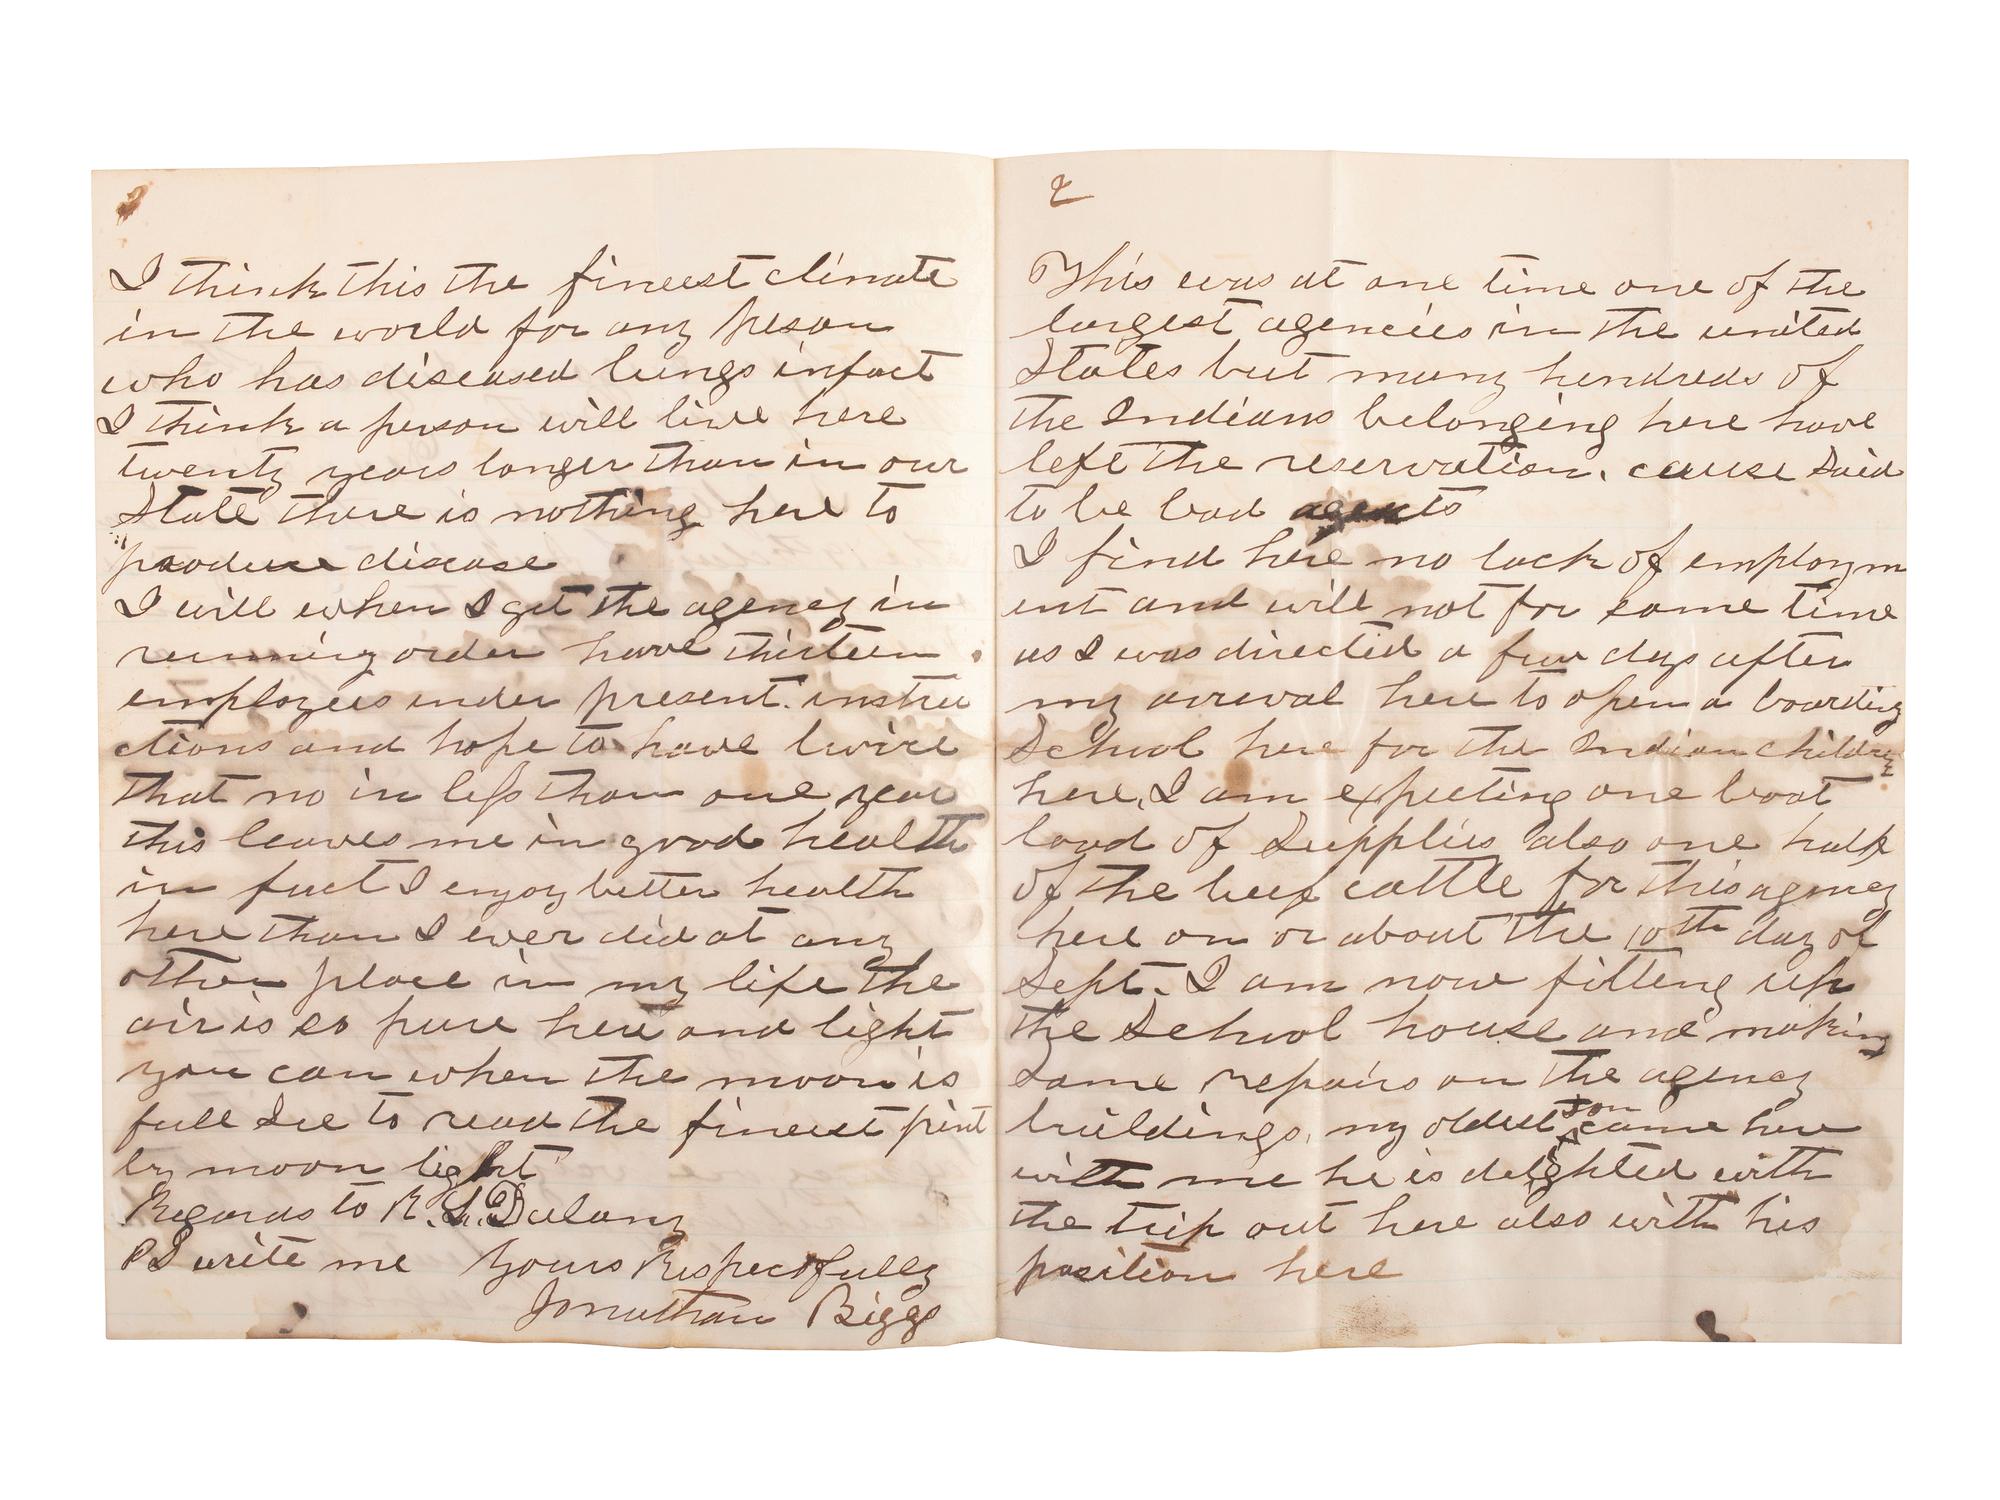 I think this the fineest climate
in the world for any peson
who has diseased lungs infact
I think a person will live here
twenty years longer than in our
State there is nothing here to
produce disease
I will when I get the agency in
running order have thirteen
employees under present instru
ctions and hope to have twice
that no in less than one year
this leaves me in good health
in fact I enjoy better health
here than I ever did at any
other place in my life the
air is so pure here and light
you can when the moon is
full see to read the fineest print
by moon light
Regards to R. L. Dulany
PS write me Yours Respectfully
Jonathan Biggs
2
This was at one time one of the
largest agencies in the united
States but many hundreds of
the Indians belonging here have
left the reservation. cause Said
to be bad agents
I find here no lack of employm
ent and will not for some time
as I was directed a few days after
my arreval here to open a boarding
School here for the Indian children
here, I am expecting one boat
load of Supplies also one half
of the beef cattle for this agency
here on or about the 10th day of
Sept. I am now fitting up
the School house and making
some repairs on the agency
buildings, my oldest son came here
with me he is delighted with
the trip out here also with his
position here